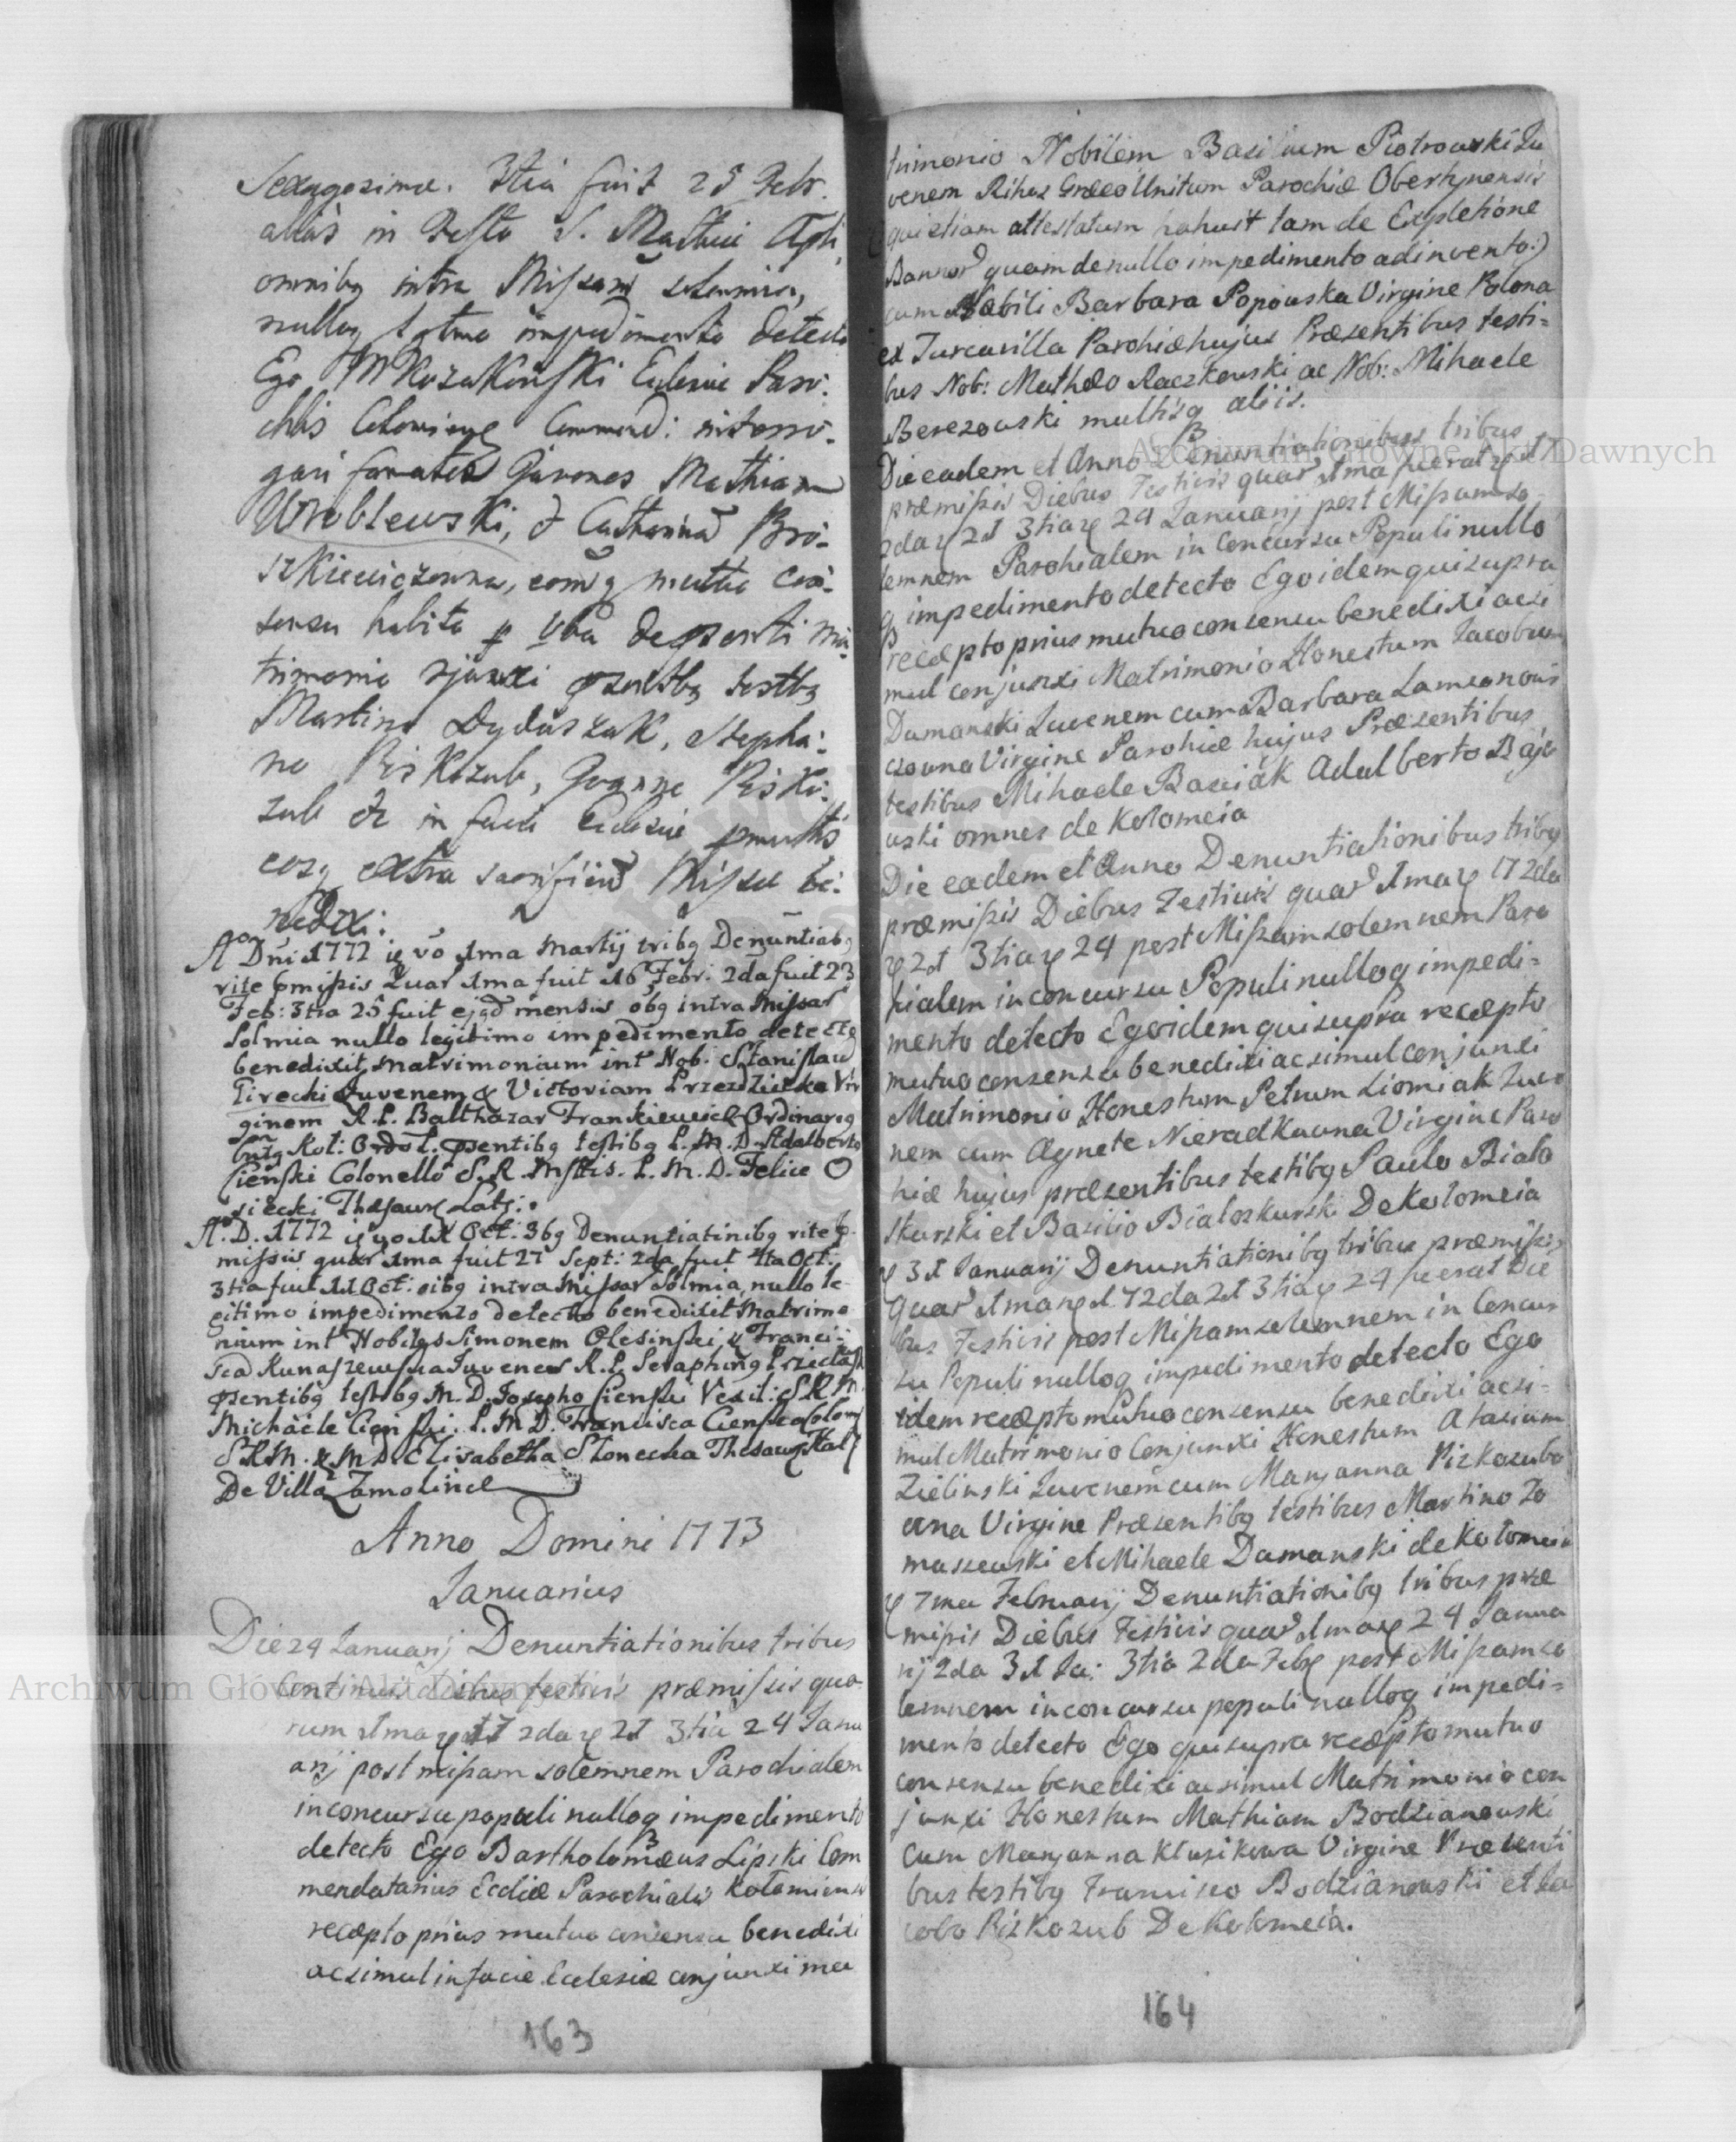 Sexagesimae. 3tia fuit 25 Febr.
alias in Festo S. Mathiae Apli,
omnibq intra Missarū solemnia,
nulloq lgtmo impedimento detecto
Ego M Kozakouski Ecclesiae Paro-
chlis Commend: interro-
gavi Juvenes Mathiam
Wroblewski, & Catharinā Bro-
szkiewiczowna, eorūq mutuo con-
sensu habito p Vba de psenti ma-
trimonio cjunxi psentbq testbq
Martino Dyduszak, Stepha-
no Piskozub, Joanne Pisko-
zub & in facie Ecclesiae
eosq extra sacrificiū Missae be-
nedixi:
Ao Dni 1772 vo 1ma Martij tribq Denuntiabq
rite pmissis Quar 1ma fuit 16 Febr. 2da fuit 23
Feb: 3tia 25 fuit ejgd mensis obq intra Missar
Solmia nullo legitimo impedimento detecto
benedixit matrimonium int Nob. Stanislaū
Girecki Juvenem & Victoriam Przezdziecka Vir
ginem R. P. Balthazar Frankiewicz Ordinariq
Kol: Ord: psentibq testibq P. M. D. Adalberto
Cienski Colonello S. R. Mstis. P. M. D. Felice O
siecki Thesaur Laty:
Ao. D. 1772 vo 11 Oct: 3bq Denuntiatinibq rite p-
missis quar 1ma fuit 27 Sept: 2da fuit 4ta Oct:
3tia fuit 11 Oct: oibq intra Missar Solmia, nullo le-
gitimo impedimento detecto benedixit Matrimo-
nium int Nobiles Simonem Olesinski & Franci-
sca Kunaszewska Juvenes R. P. Seraphinq
psentibq testibq M. D. Josepho Cienski Vexil: S R M.
Michaele Cienski. P. M D. Francisca Cienska Colom
S R M. & M D. Elisabetha Slonecka Thesaur
De Villa Zamolince
Anno Domini 1773
Januarius
Die 24 Januarij Denuntiationibus tribus
Continuis diebus festivis praemissis quo
rum 1ma 17 2da 21 3tia 24 Janu
arij post missam solemnem Parochialem
in concursu populi nulloq impedimento
detecto Ego Bartholomaeus Lipski Com
mendatarius Ecclae Parochialis Kolomiensis
recepto prius mutuo consensu benedixi
ac simul in facie Eclesiae conjunxi ma
163
trimonio Nobilem Basilium Piotrowski Ju
venem Ritus Graeco Unitum Parochiae Obertynensis
(qui etiam attestatum habuit tam de Expletione
Bannor quam de nullo impedimento adinvento:)
cum Nobili Barbara Popowska Virgine Polona
ex Turcavilla Parohiae hujus Praesentibus testi=
bus Nob: Mathaeo Raczkowski ac Nob: Mihaele
Berezowski multisq aliis.
Die eadem et Anno Denuntiationibus tribus
praemissis Diebus Festivis quar 1ma fuerat 17
2da 21 3tia 24 Januarij post Missam so
lemnem Parohialem in Concursu Populi nullo
q impedimento detecto Ego idem qui supra
recepto prius mutuo consensu benedixi ac si
mul conjunxi Matrimonio Honestum Jacobum
Damanski Juvenem cum Barbara Lamconowi
czowna Virgine Parohiae hujus Praesentibus
testibus Mihaele Basiak Adalberto Baje
wski omnes de Kolomeia
Die eadem et Anno Denuntiationibus tribq
praemissis Diebus Festivis quar 1ma 17 2da
21 3tia 24 post Missam solemnem Paro
hialem in concursu Populi nulloq impedi=
mento detecto Ego idem qui supra recepto
mutuo consensu benedixi ac simul conjunxi
Matrimonio Honestum Petrum Liomiak Juve
nem cum Agnete Nieradkowna Virgine Paro
hiae hujus praesentibus testibq Paulo Bialo
skurski et Basilio Bialoskurski De Kolomeia
31 Januarij Denuntiationibq tribus praemissis
Quar 1ma 17 2da 21 3tia 24 fuerat Die
bus Festivis post Missam solemnem in Concur
su Populi nulloq impedimento detecto Ego
idem recepto mutuo consensu benedixi ac si=
mul Matrimonio Conjunxi Honestum Atasium
Zielinski Juvenem cum Marjanna Pizkozubo
wna Virgine Praesentibq testibus Martino To
maszewski et Mihaele Damanski de Kolomeia
7ma Februarij Denuntiationibq tribus prae
missis Diebus Festivis quar 1ma 24 Janua
rij 2da 31 Ja: 3tia 2da Feb post Missam so
lemnem in concursu populi nulloq impedi=
mento detecto Ego qui supra recepto mutuo
consensu benedixi ac simul Matrimonio con
junxi Honestum Mathiam Bodzianowski
Cum Marjanna Klusikowa Virgine Praesenti
bus testibq Francisco Bodzianowski et Ja
cobo Pizkozub De Kolomeia.
164
Archiwum Główne Akt Dawnych
Archiwum Główne Akt Dawnych